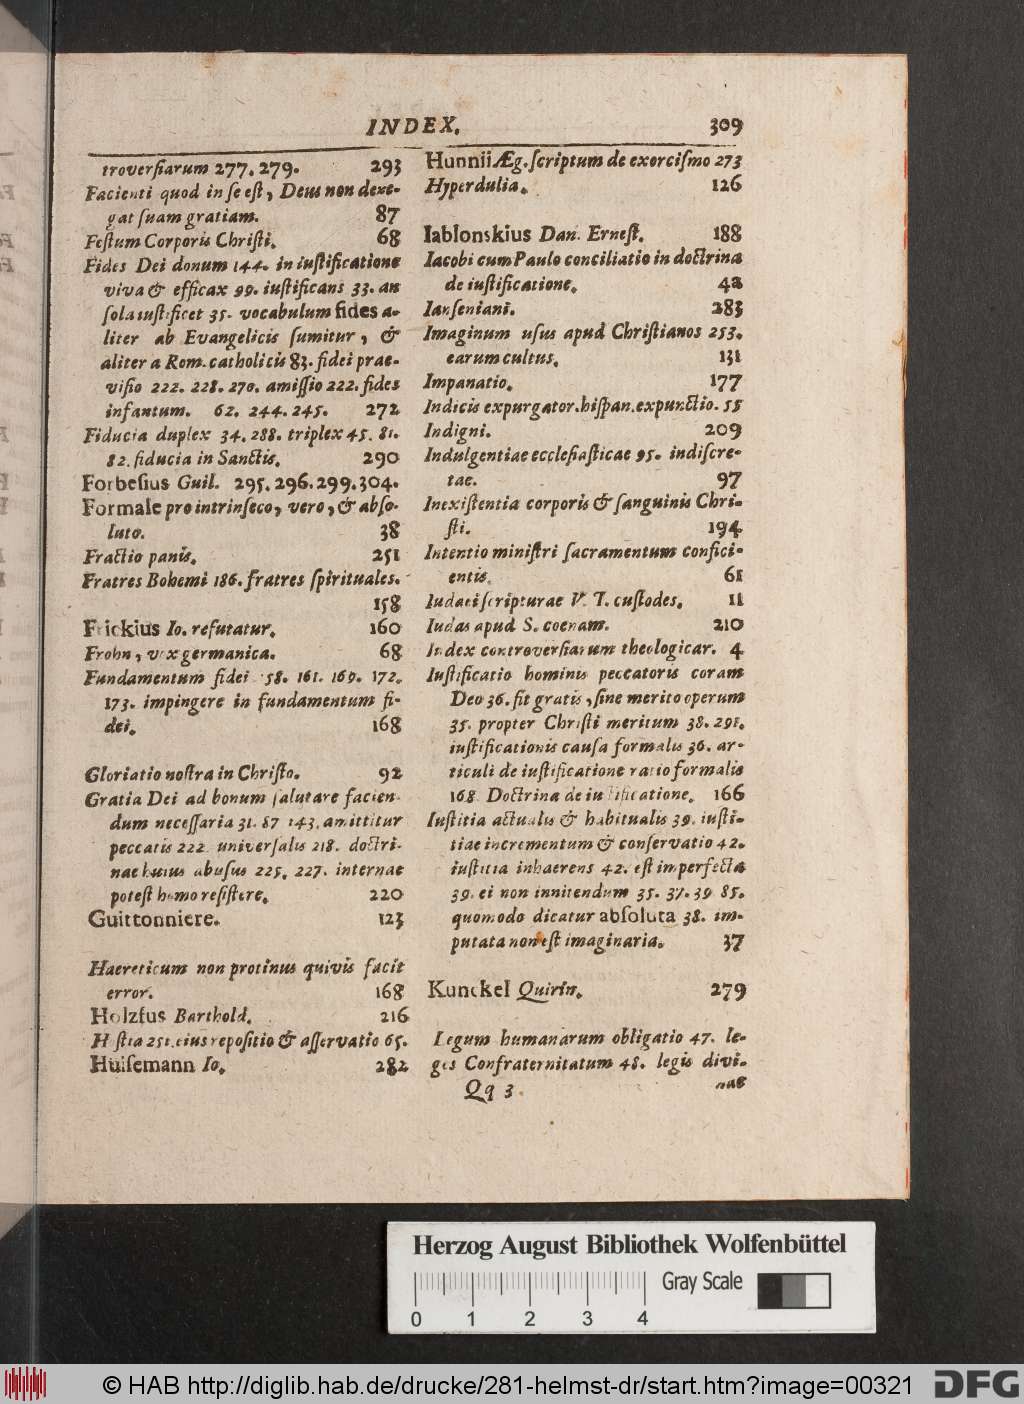 INDEX. 309
troverſiarum 277. 279. 293
Facienti quod in ſe eſt, Deus non dene-
gat ſuam gratiam. 87
Feſtum Corporis Chriſti. 68
Fides Dei donum 144. in iuſtificatione
viva & efficax 99. iuſtificans 33. an
ſola iuſtificet 35. vocabulum fides a-
liter ab Evangelicis ſumitur, &
aliter a Rom. catholicis 83. fidei prae-
viſio 222. 228. 270. amiſſio 222. fides
infantum. 62. 244. 245. 272
Fiducia duplex 34. 288. triplex 45. 81.
82. fiducia in Sanctis. 290
Forbeſius Guil. 295. 296. 299. 304.
Formale pro intrinſeco, vero, & abſo-
luto. 38
Fractio panis. 251
Fratres Bohemi 186. fratres ſpirituales.
158
Frickius Io. refutatur. 160
Frohn, vox germanica. 68
Fundamentum fidei 58. 161. 169. 172.
173. impingere in fundamentum fi-
dei. 168
Gloriatio noſtra in Chriſto. 92
Gratia Dei ad bonum ſalutare facien-
dum neceſſaria 31. 87 143. amittitur
peccatis 222. univerſalis 218. doctri-
nae huius abuſus 225. 227. internae
poteſt homo reſiſtere. 220
Guittonniere. 123
Haereticum non protinus quivis facit
error. 168
Holzfus Barthold. 216
Hoſtia 251. eius repoſitio & aſſervatio 65.
Hulſemann Io. 282
Hunnii Æg. ſcriptum de exorciſmo 273
Hyperdulia. 126
Iablonskius Dan. Erneſt. 188
Iacobi cum Paulo conciliatio in doctrina
de iuſtificatione. 42
Ianſeniani. 283
Imaginum uſus apud Chriſtianos 253.
earum cultus. 131
Impanatio. 177
Indicis expurgator. hiſpan. expunctio. 55
Indigni. 209
Indulgentiae eccleſiaſticae 95. indiſcre-
tae. 97
Inexiſtentia corporis & ſanguinis Chri-
ſti. 194
Intentio miniſtri ſacramentum confici-
entis. 61
Iudaei ſcripturae V. T. cuſtodes. 11
Iudas apud S. coenam. 210
Iudex controverſiarum theologicar. 4
Iuſtificatio hominis peccatoris coram
Deo 36. fit gratis, ſine merito operum
35. propter Chriſti meritum 38. 291.
iuſtificationis cauſa formalis 36. ar-
ticuli de iuſtificatione ratio formalis
168. Doctrina de iuſtificatione. 166
Iuſtitia actualis & habitualis 39. iuſti-
tiae incrementum & conſervatio 42.
iuſtitia inhaerens 42. eſt imperfecta
39. ei non innitendum 35. 37. 39 85.
quomodo dicatur abſoluta 38. im-
putata non eſt imaginaria. 37
Kunckel Quirin. 279
Legum humanarum obligatio 47. le-
ges Confraternitatum 48. legis divi-
Qq 3 nae
Herzog August Bibliothek Wolfenbüttel
Gray Scale
0 1 2 3 4
© HAB http://diglib.hab.de/drucke/281-helmst-dr/start.htm?image=00321 DFG